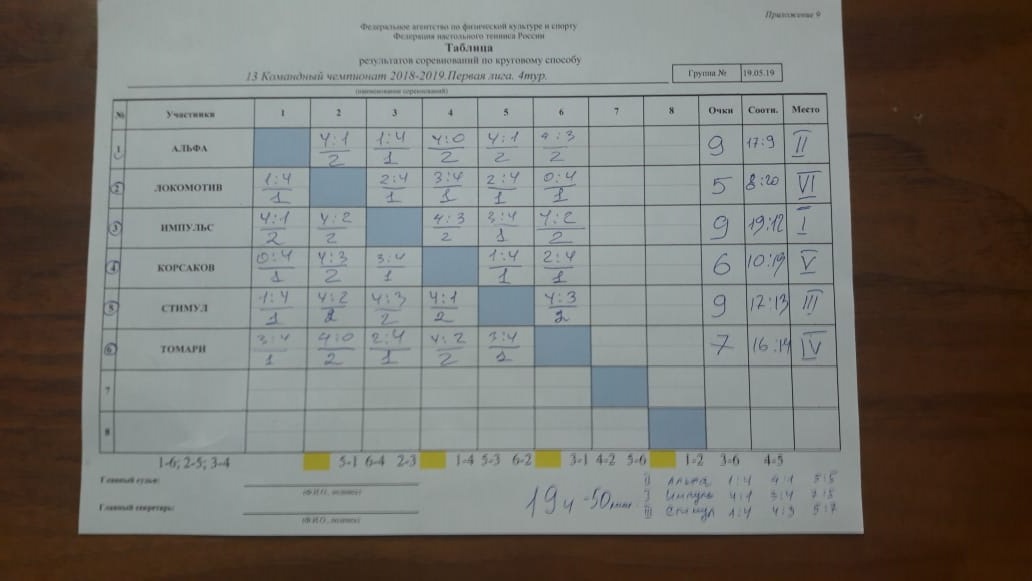 Приложение 9
Федеральное агентство по физической культуре и спорту
Федерация настольного тенниса России
Таблица
результатов соревнований по круговому способу
13 Командный чемпионат 2018-2019.Первая лига. 4тур.
Группа № 19.05.19
(наименование соревнований)
№ Участники 1 2 3 4 5 6 7 8 Очки Соотн. Место
1 АЛЬФА 4:1 1:4 4:0 4:1 4:3 9 17:9 II
2 1 2 2 2
2 ЛОКОМОТИВ 1:4 2:4 3:4 2:4 0:4 5 8:20 VI
1 1 1 1 1
3 ИМПУЛЬС 4:1 4:2 4:3 3:4 4:2 9 19:12 I
2 2 2 1 2
4 КОРСАКОВ 0:4 4:3 3:4 1:4 2:4 6 10:19 V
1 2 1 1 1
5 СТИМУЛ 1:4 4:2 4:3 4:1 4:3 9 17:13 III
1 2 2 2 2
6 ТОМАРИ 3:4 4:0 2:4 4:2 3:4 7 16:14 IV
1 2 1 2 1
7
8
1-6; 2-5; 3-4 5-1 6-4 2-3 1-4 5-3 6-2 3-1 4-2 5-6 1-2 3-6 4-5
Главный судья:
(Ф.И.О., подпись)
Главный секретарь:
(Ф.И.О., подпись)
19ч-50мин.
II Альфа 1:4 4:1 5:5
I Импульс 4:1 3:4 7:5
III Стимул 1:4 4:3 5:7